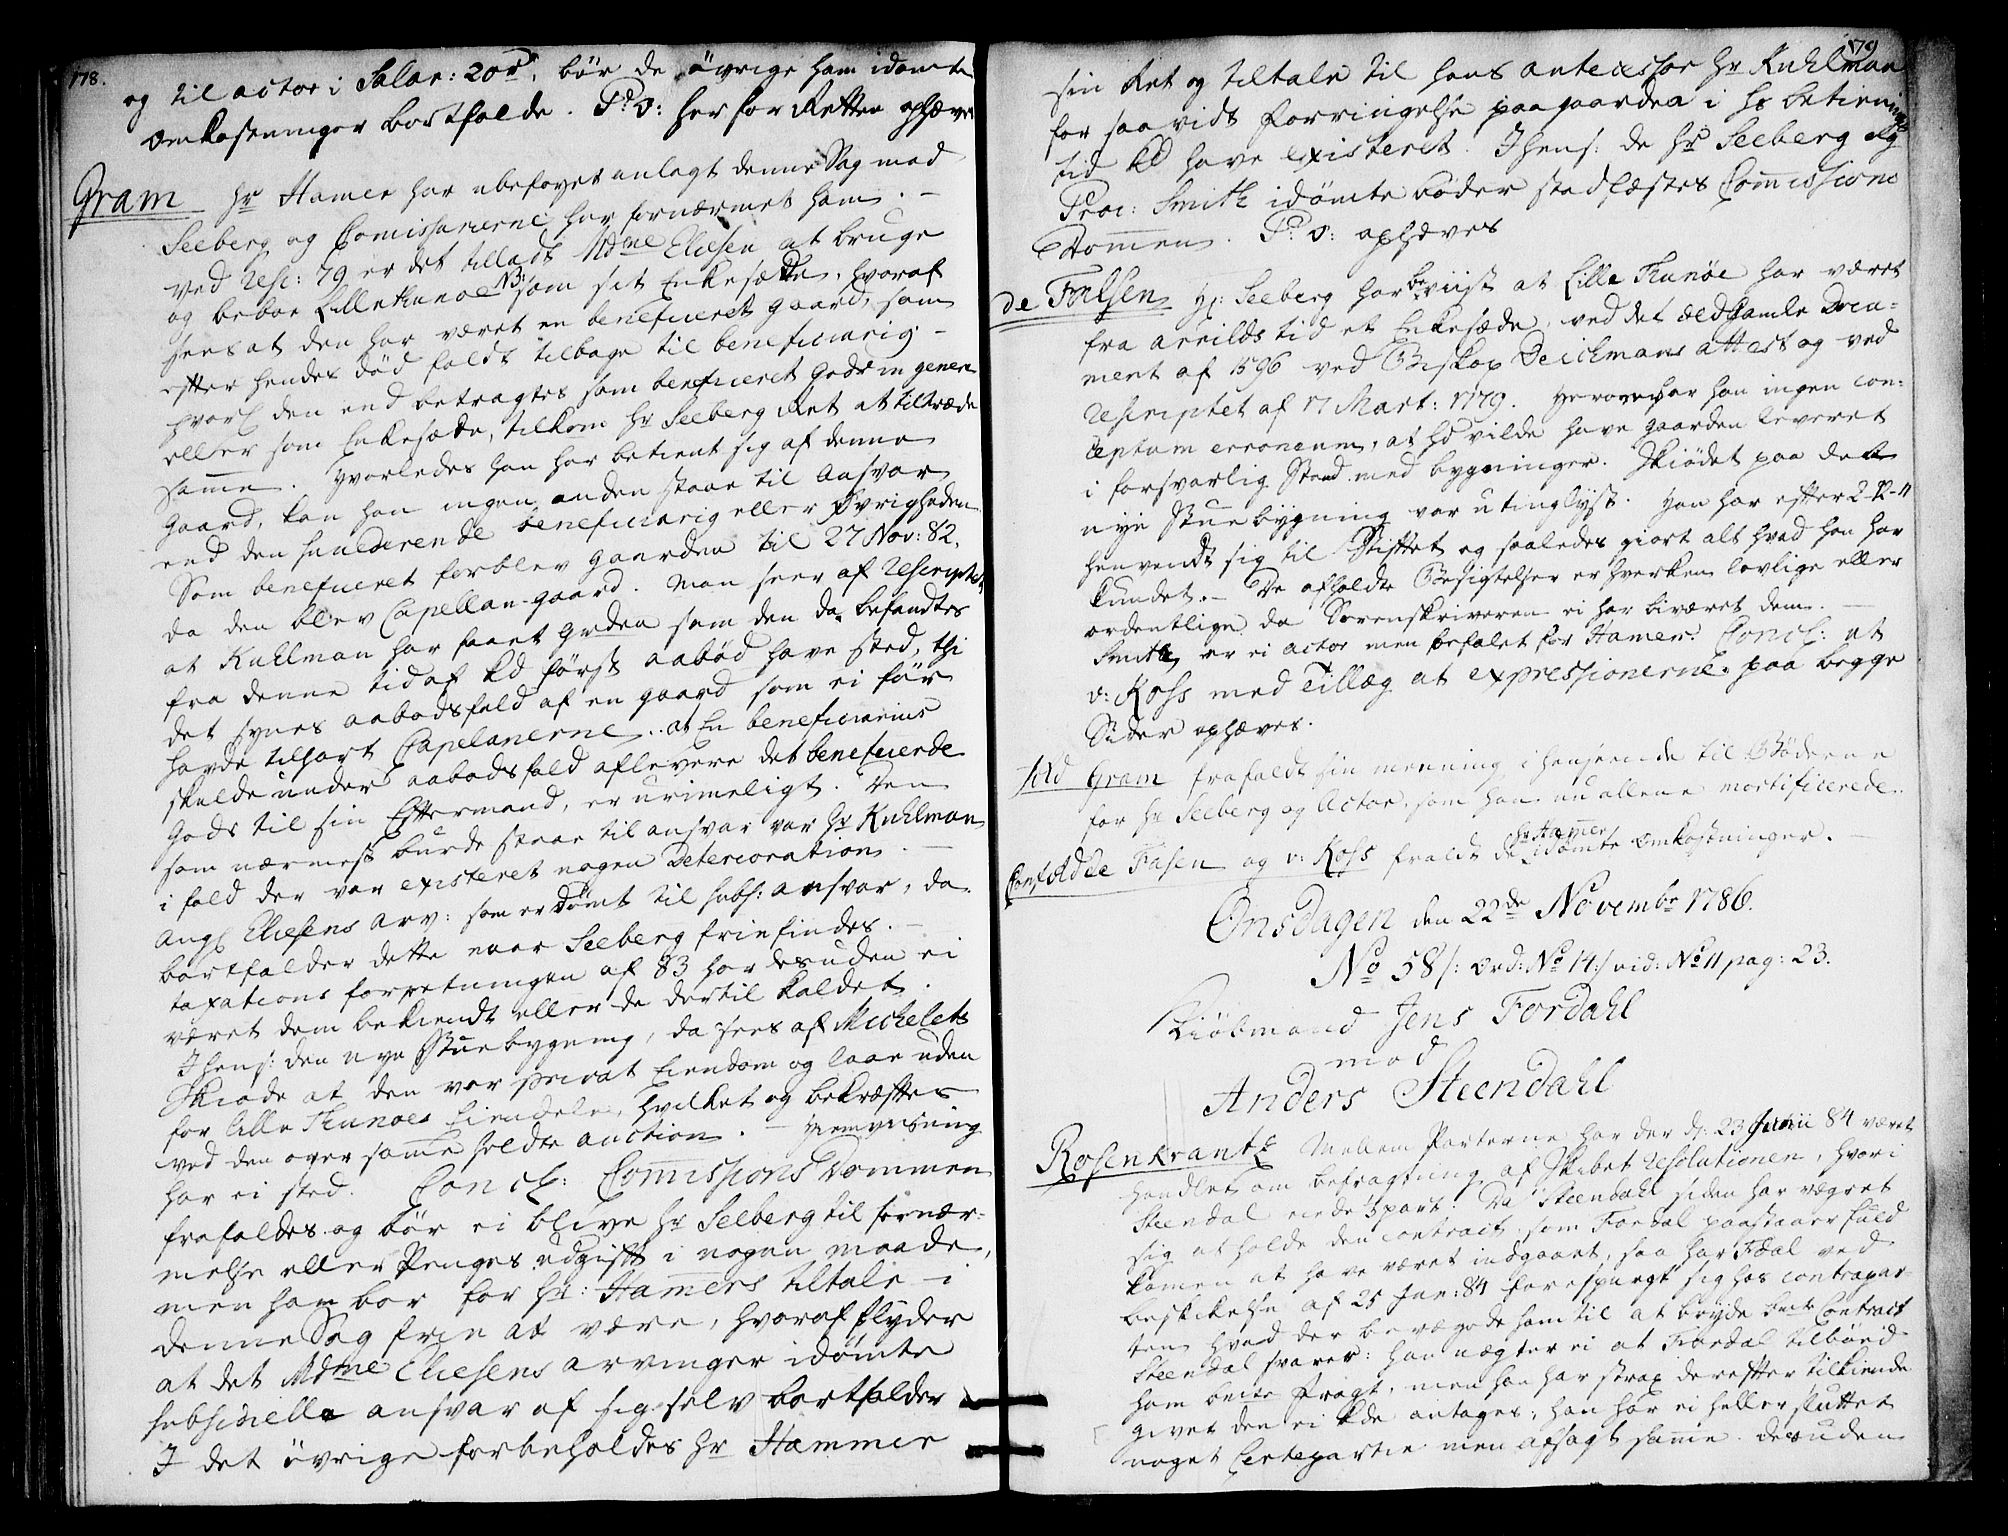 178.
og til actor i Salar: 20rd, bör de övrige ham idömte
Omkostninger bortfalde. P: v: her for Retten ophæves
Gram Hr Hamer har ubeföyet anlagt denne Sag mod
Seeberg og Comissarierne har fornærmet ham. —
Ved Resc: 79 er det tilladt Mdme Eliesen at bruge
og beboe Lille Thunöe NB: som sit Enkesæde, hvoraf
sees at den har været en beneficeret gaard, som
efter hendes död faldt tilbage til beneficiarig —
hvorl den end betragtes som beneficeret Gods in genere
eller som Enkesæde, tilkom hr Seeberg Ret at tiltræde
samme. Hvorledes han har betient sig af denne
Gaard, kan han ingen anden staae til Ansvar
end den succederende beneficiarig eller Övrigheden.
Som beneficeret forblev gaarden til 27 Nov: 82,
da den blev Capellan-gaard. Man seer af Rescriptet
at Kuhlman har faaet Grden som den da befandtes
fra denne tid af kd först aabod have sted, thi
det synes aabodsfald af en gaard som ei för
havde tilhört Capelanerne .. at En beneficiarius
skulde under aabodsfald aflevere det beneficerde
Gods til sin Eftermand, er urimeligt. Den
som nærmest burde staae til ansvar var hr Kuhlman
i fald der var existeret nogen Deterioration. —
Angl Eliesens Arv: som er dömt til subs: ansvar, da
bortfalder dette naar Seeberg friefindes. —
taxations forretningen af 83 har desuden ei
været dem bekiendt eller de dertil kaldet.
I hens: den nye Stuebygning, da sees af Michelets
Skiöde at den var privat Eiendom og laae uden
for Lille Thunöes Eiendele, hvilket og bekræftes
ved den over samme holdte auction. — Hiemviisning
har ei sted. Concl: Commissions Dommen
frafaldes og bör ei blive hr Seeberg til fornær-
melse eller Penges udgift i nogen maade,
men ham bör for hr: Hamers tiltale i
denne Sag frie at være, hvoraf flyder
at det Mdme Eliesens arvinger idömte
subsidielle ansvar af sig selv bortfalder
I det övrige forbeholdes hr Hammer
179
sin Ret og tiltale til hans antecessor hr Kuhlman
for saavidt forringelse paa gaarden i hs betienings
tid kd have existeret. I hens: de hr Seeberg og
Proc: Smith idömte böder stadfæstes Commissions
Dommen. P: v: ophæves
de Falsen Hr: Seeberg har beviist at Lille Thunöe har været
fra arrilds tid et Enkesæde, ved det ældgamle Docu-
ment af 1596 ved Biskop Deichmans attest og ved
Rescriptet af 17 Mart: 1779. Herover har han ingen con-
ceptum erroneum, at hd vilde have gaarden leveret
i forsvarlig Stand med bygninger. Skiödet paa den
nye Stuebygning var utinglyst. Han har efter 2-12-11
henvendt sig til Stiftet og saaledes giort alt hvad han har
kundet. — De afholdte Besigtelser er hverken lovlige eller
ordentlige da Sorenskriveren ei har biværet dem. —
Smith er ei actor men befalet for Hamer. Concl: ut
v: Koss med Tillæg at expressionerne paa begge
Sider ophæves.
Told Gram frafaldt sin meening i henseende til Böderne
for hr Seeberg og Actor, som han nu allene mortificerede.
Conf. Told de Fasen og v: Koss fraldt de hr Hammer idömte Omkostninger. —
Onsdagen den 22de Novembr 1786.
No 58/: Ord: No 14:/ vid: No 11 pag: 23.
Kiöbmand Jens Fordahl
mod
Anders Steendahl
Rosenkrantz Mellem Parterne har der d: 23 Junii 84 været
handlet om befragtning af Skibet Resolutionen, hvori
Steendal eiede ⅓ part. Da Steendahl siden har vægret
sig at holde den contract som Fordal paastaaer fuld
kommen at have været indgaaet, saa har Fdal ved
beskikelse af 25 Jun: 84 forespurgt sig hos contrapar-
ten hvad der bevægede ham til at bryde bmte Contract
Steendal svarer: han nægter ei at Fordal tilböd
ham bmte fragt, men han har strax derefter tilkiende
givet den ei kde antages, han har ei heller sluttet
noget Certepartie men afsagt samme. desuden